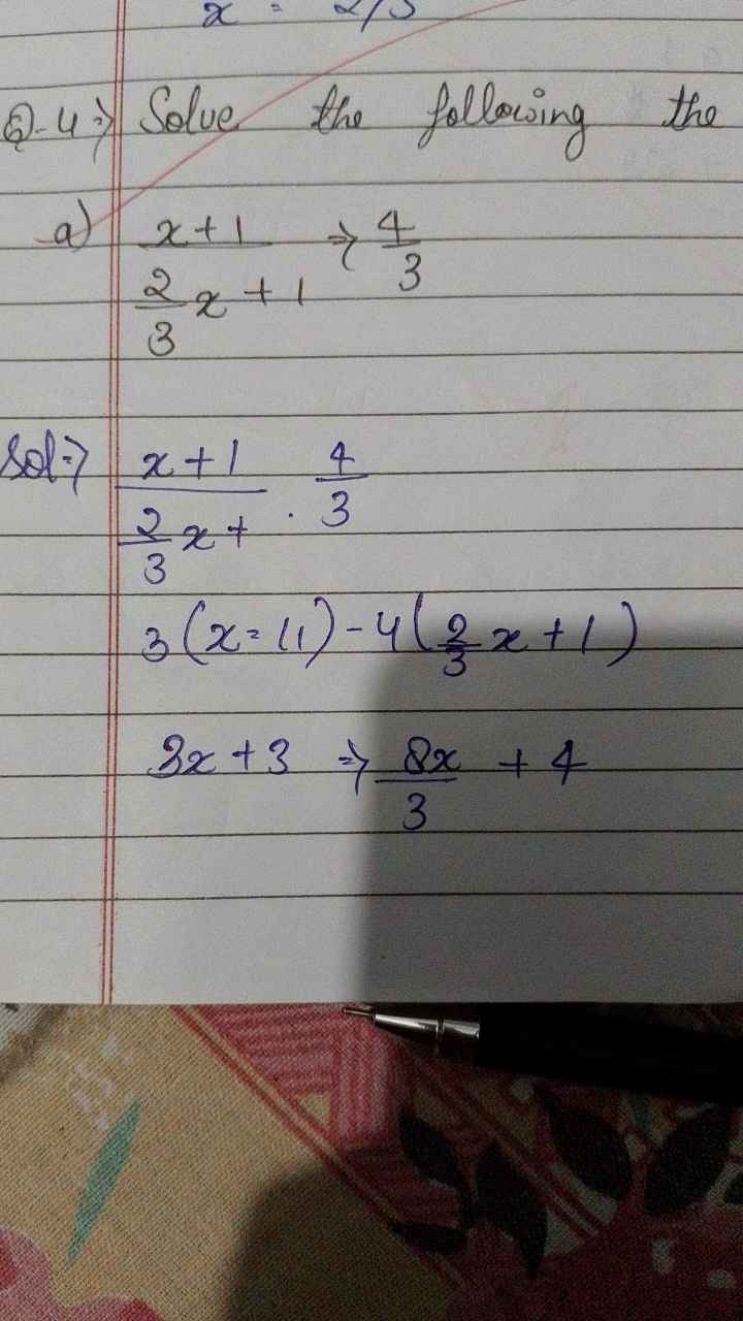 x = 2/3
Q-4 ⇒ Solve the following the
a) x+1 ⇒ 4
2/3 x + 1 3
Sol ⇒ x+1 4
2/3 x + . 3
3(x=11)-4(2/3 x+1)
3x+3 ⇒ 8x/3 + 4